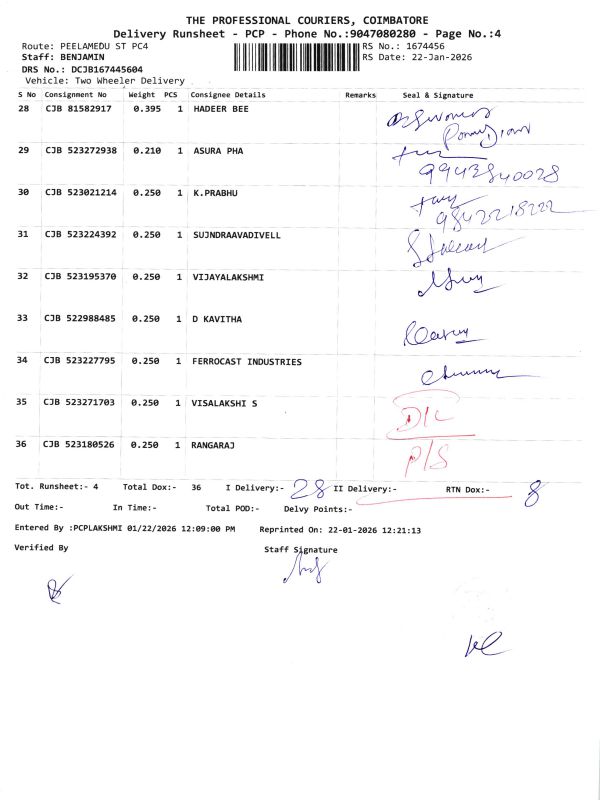 THE PROFESSIONAL COURIERS, COIMBATORE
Delivery Runsheet - PCP - Phone No.:9047080280 - Page No.:4
Route: PEELAMEDU ST PC4 RS No.: 1674456
Staff: BENJAMIN RS Date: 22-Jan-2026
DRS No.: DCJB167445604
Vehicle: Two Wheeler Delivery
S No Consignment No Weight PCS Consignee Details Remarks Seal & Signature
28 CJB 81582917 0.395 1 HADEER BEE
29 CJB 523272938 0.210 1 ASURA PHA
9943840028
30 CJB 523021214 0.250 1 K.PRABHU
9842218222
31 CJB 523224392 0.250 1 SUJNDRAAVADIVELL
32 CJB 523195370 0.250 1 VIJAYALAKSHMI
33 CJB 522988485 0.250 1 D KAVITHA
34 CJB 523227795 0.250 1 FERROCAST INDUSTRIES
35 CJB 523271703 0.250 1 VISALAKSHI S D/L
36 CJB 523180526 0.250 1 RANGARAJ P/S
Tot. Runsheet:- 4 Total Dox:- 36 I Delivery:- 28 II Delivery:- RTN Dox:- 8
Out Time:- In Time:- Total POD:- Delvy Points:-
Entered By :PCPLAKSHMI 01/22/2026 12:09:00 PM Reprinted On: 22-01-2026 12:21:13
Verified By Staff Signature